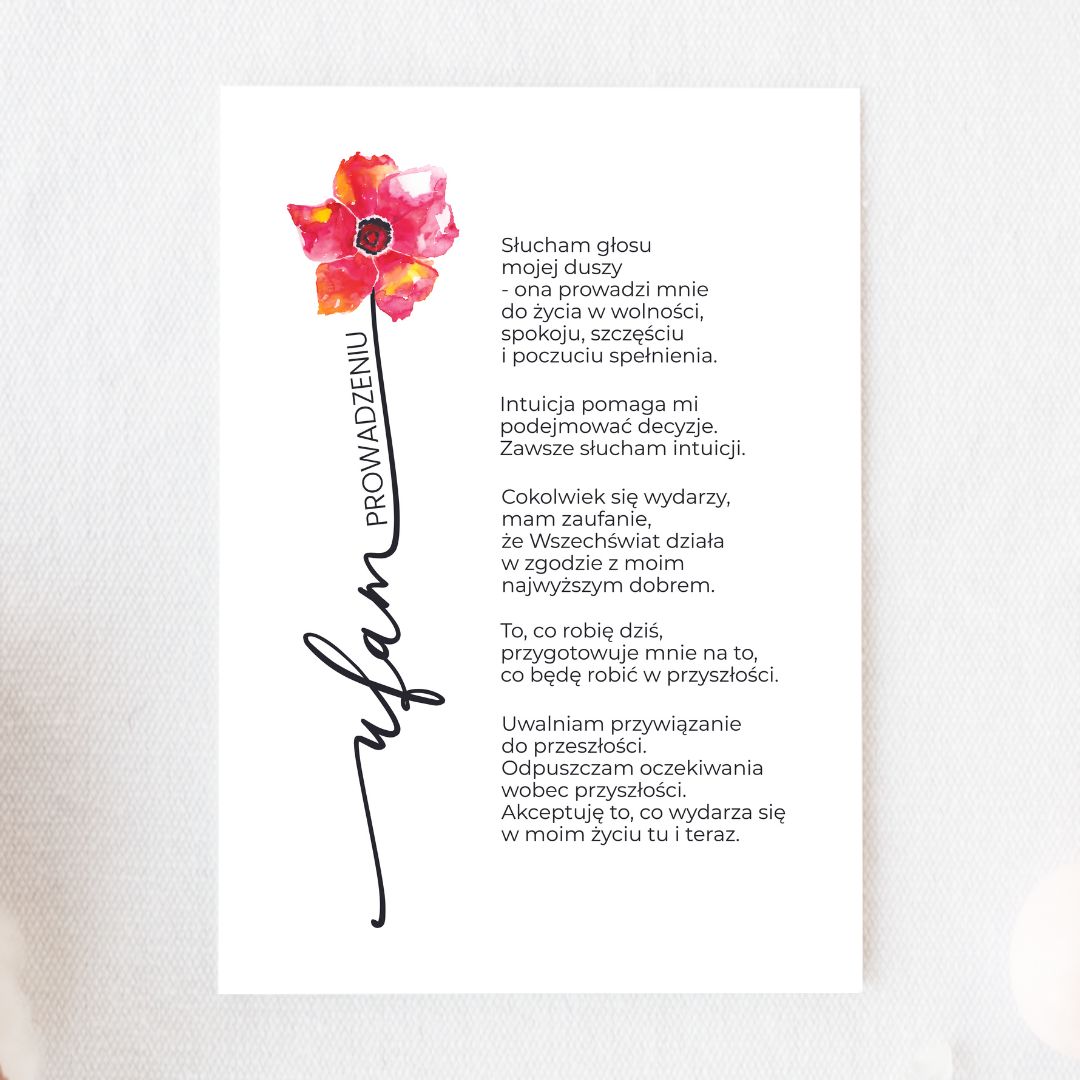 ufam
PROWADZENIU
Słucham głosu
mojej duszy
- ona prowadzi mnie
do życia w wolności,
spokoju, szczęściu
i poczuciu spełnienia.
Intuicja pomaga mi
podejmować decyzje.
Zawsze słucham intuicji.
Cokolwiek się wydarzy,
mam zaufanie,
że Wszechświat działa
w zgodzie z moim
najwyższym dobrem.
To, co robię dziś,
przygotowuje mnie na to,
co będę robić w przyszłości.
Uwalniam przywiązanie
do przeszłości.
Odpuszczam oczekiwania
wobec przyszłości.
Akceptuję to, co wydarza się
w moim życiu tu i teraz.